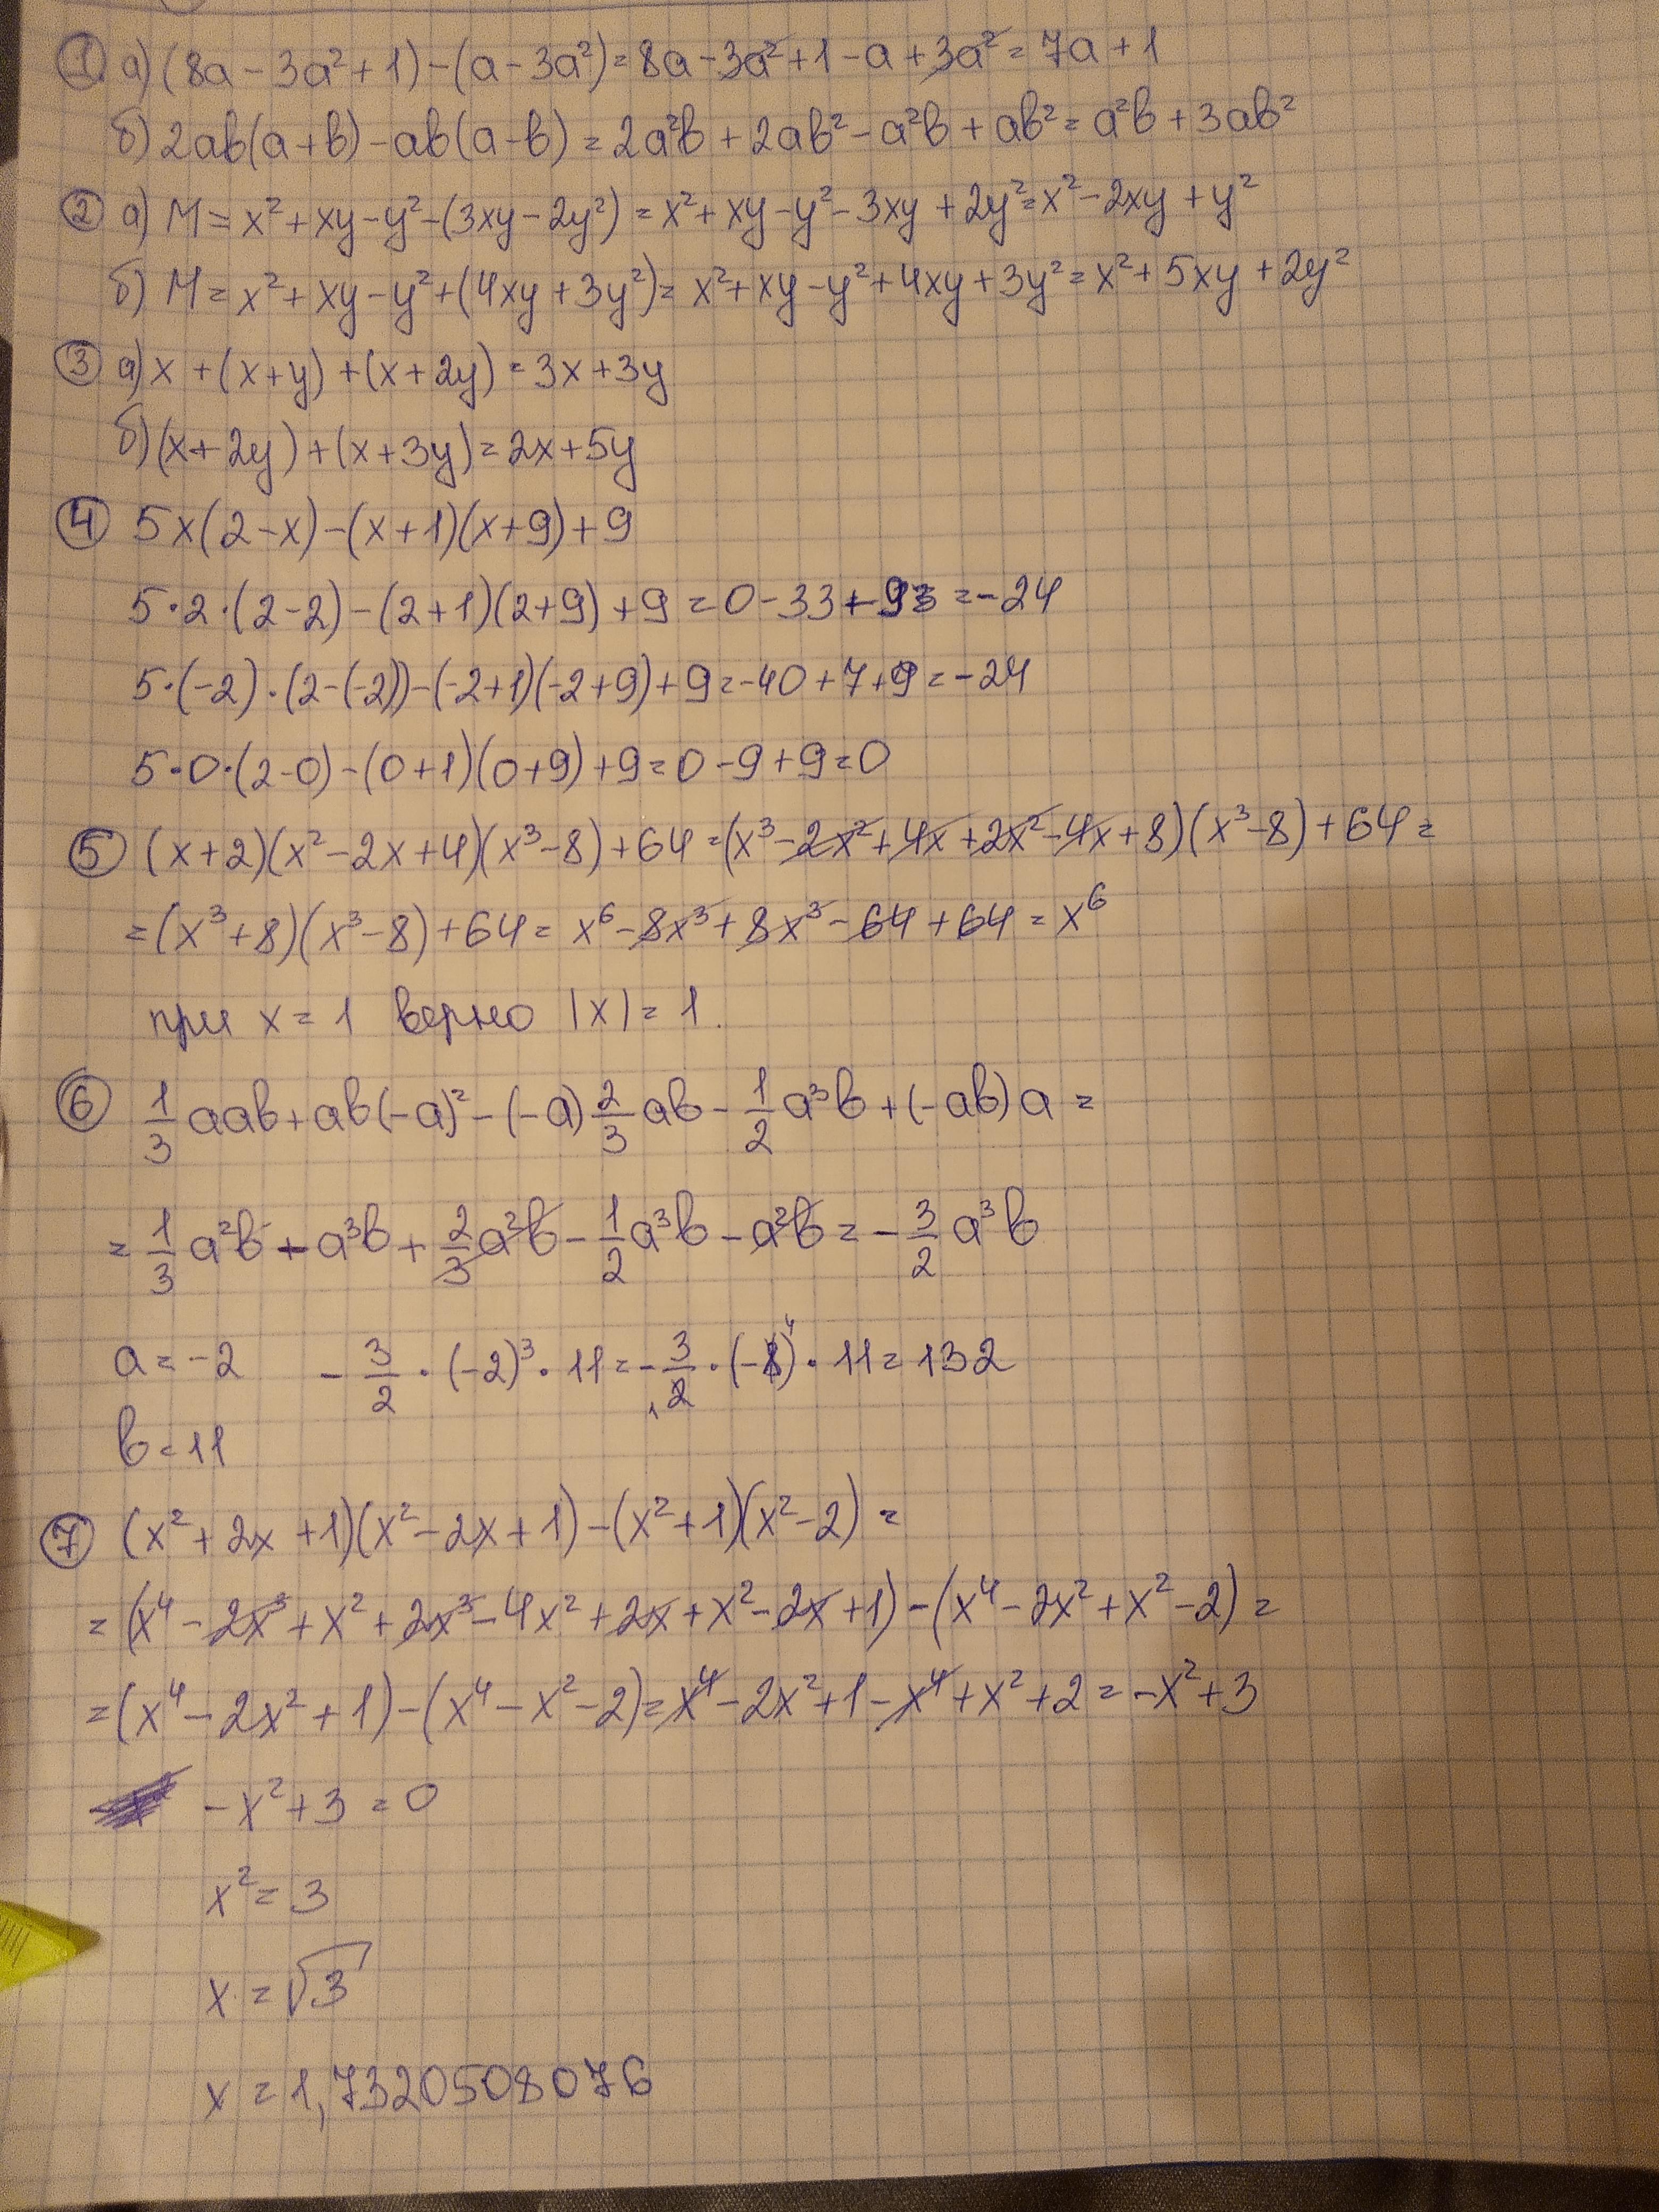 ① а) (8a - 3a² + 1) - (a - 3a²) = 8a - 3a² + 1 - a + 3a² = 7a + 1
б) 2ab(a+b) - ab(a-b) = 2a²b + 2ab² - a²b + ab² = a²b + 3ab²
② а) M = x² + xy - y² - (3xy - 2y²) = x² + xy - y² - 3xy + 2y² = x² - 2xy + y²
б) M = x² + xy - y² + (4xy + 3y²) = x² + xy - y² + 4xy + 3y² = x² + 5xy + 2y²
③ а) x + (x+y) + (x+2y) = 3x + 3y
б) (x+2y) + (x+3y) = 2x + 5y
④ 5x(2-x) - (x+1)(x+9) + 9
5·2·(2-2) - (2+1)(2+9) + 9 = 0 - 33 + 9 = -24
5·(-2)·(2-(-2)) - (-2+1)(-2+9) + 9 = -40 + 7 + 9 = -24
5·0·(2-0) - (0+1)(0+9) + 9 = 0 - 9 + 9 = 0
⑤ (x+2)(x² - 2x + 4)(x³ - 8) + 64 = (x³ - 2x² + 4x + 2x² - 4x + 8)(x³ - 8) + 64 =
= (x³ + 8)(x³ - 8) + 64 = x⁶ - 8x³ + 8x³ - 64 + 64 = x⁶
при x = 1 верно |x| = 1.
⑥ 1/3 aab + ab(-a)² - (-a) 2/3 ab - 1/2 a³b + (-ab)a =
= 1/3 a²b - a³b + 2/3 a²b - 1/2 a³b - a²b = - 3/2 a³b
a = -2 - 3/2 · (-2)³ · 11 = - 3/2 · (-8) · 11 = 132
b = 11
⑦ (x² + 2x + 1)(x² - 2x + 1) - (x² + 1)(x² - 2) =
= (x⁴ - 2x³ + x² + 2x³ - 4x² + 2x + x² - 2x + 1) - (x⁴ - 2x² + x² - 2) =
= (x⁴ - 2x² + 1) - (x⁴ - x² - 2) = x⁴ - 2x² + 1 - x⁴ + x² + 2 = -x² + 3
-x² + 3 = 0
x² = 3
x = √3
x = 1,7320508076